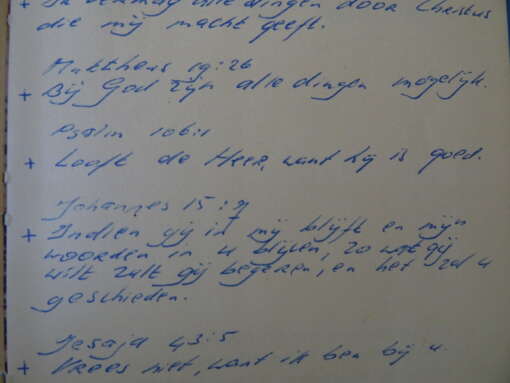 + Ik vermag alle dingen door Christus
die mij macht geeft.
Mattheus 19:26
+ Bij God zijn alle dingen mogelijk.
Psalm 106:1
+ Looft de Heer, want hij is goed.
Johannes 15:7
+ Indien gij in mij blijft en mijn
woorden in u blijven, zo wat gij
wilt zult gij begeren, en het zal u
geschieden.
Jesaja 43:5
+ Vrees niet, want ik ben bij u.